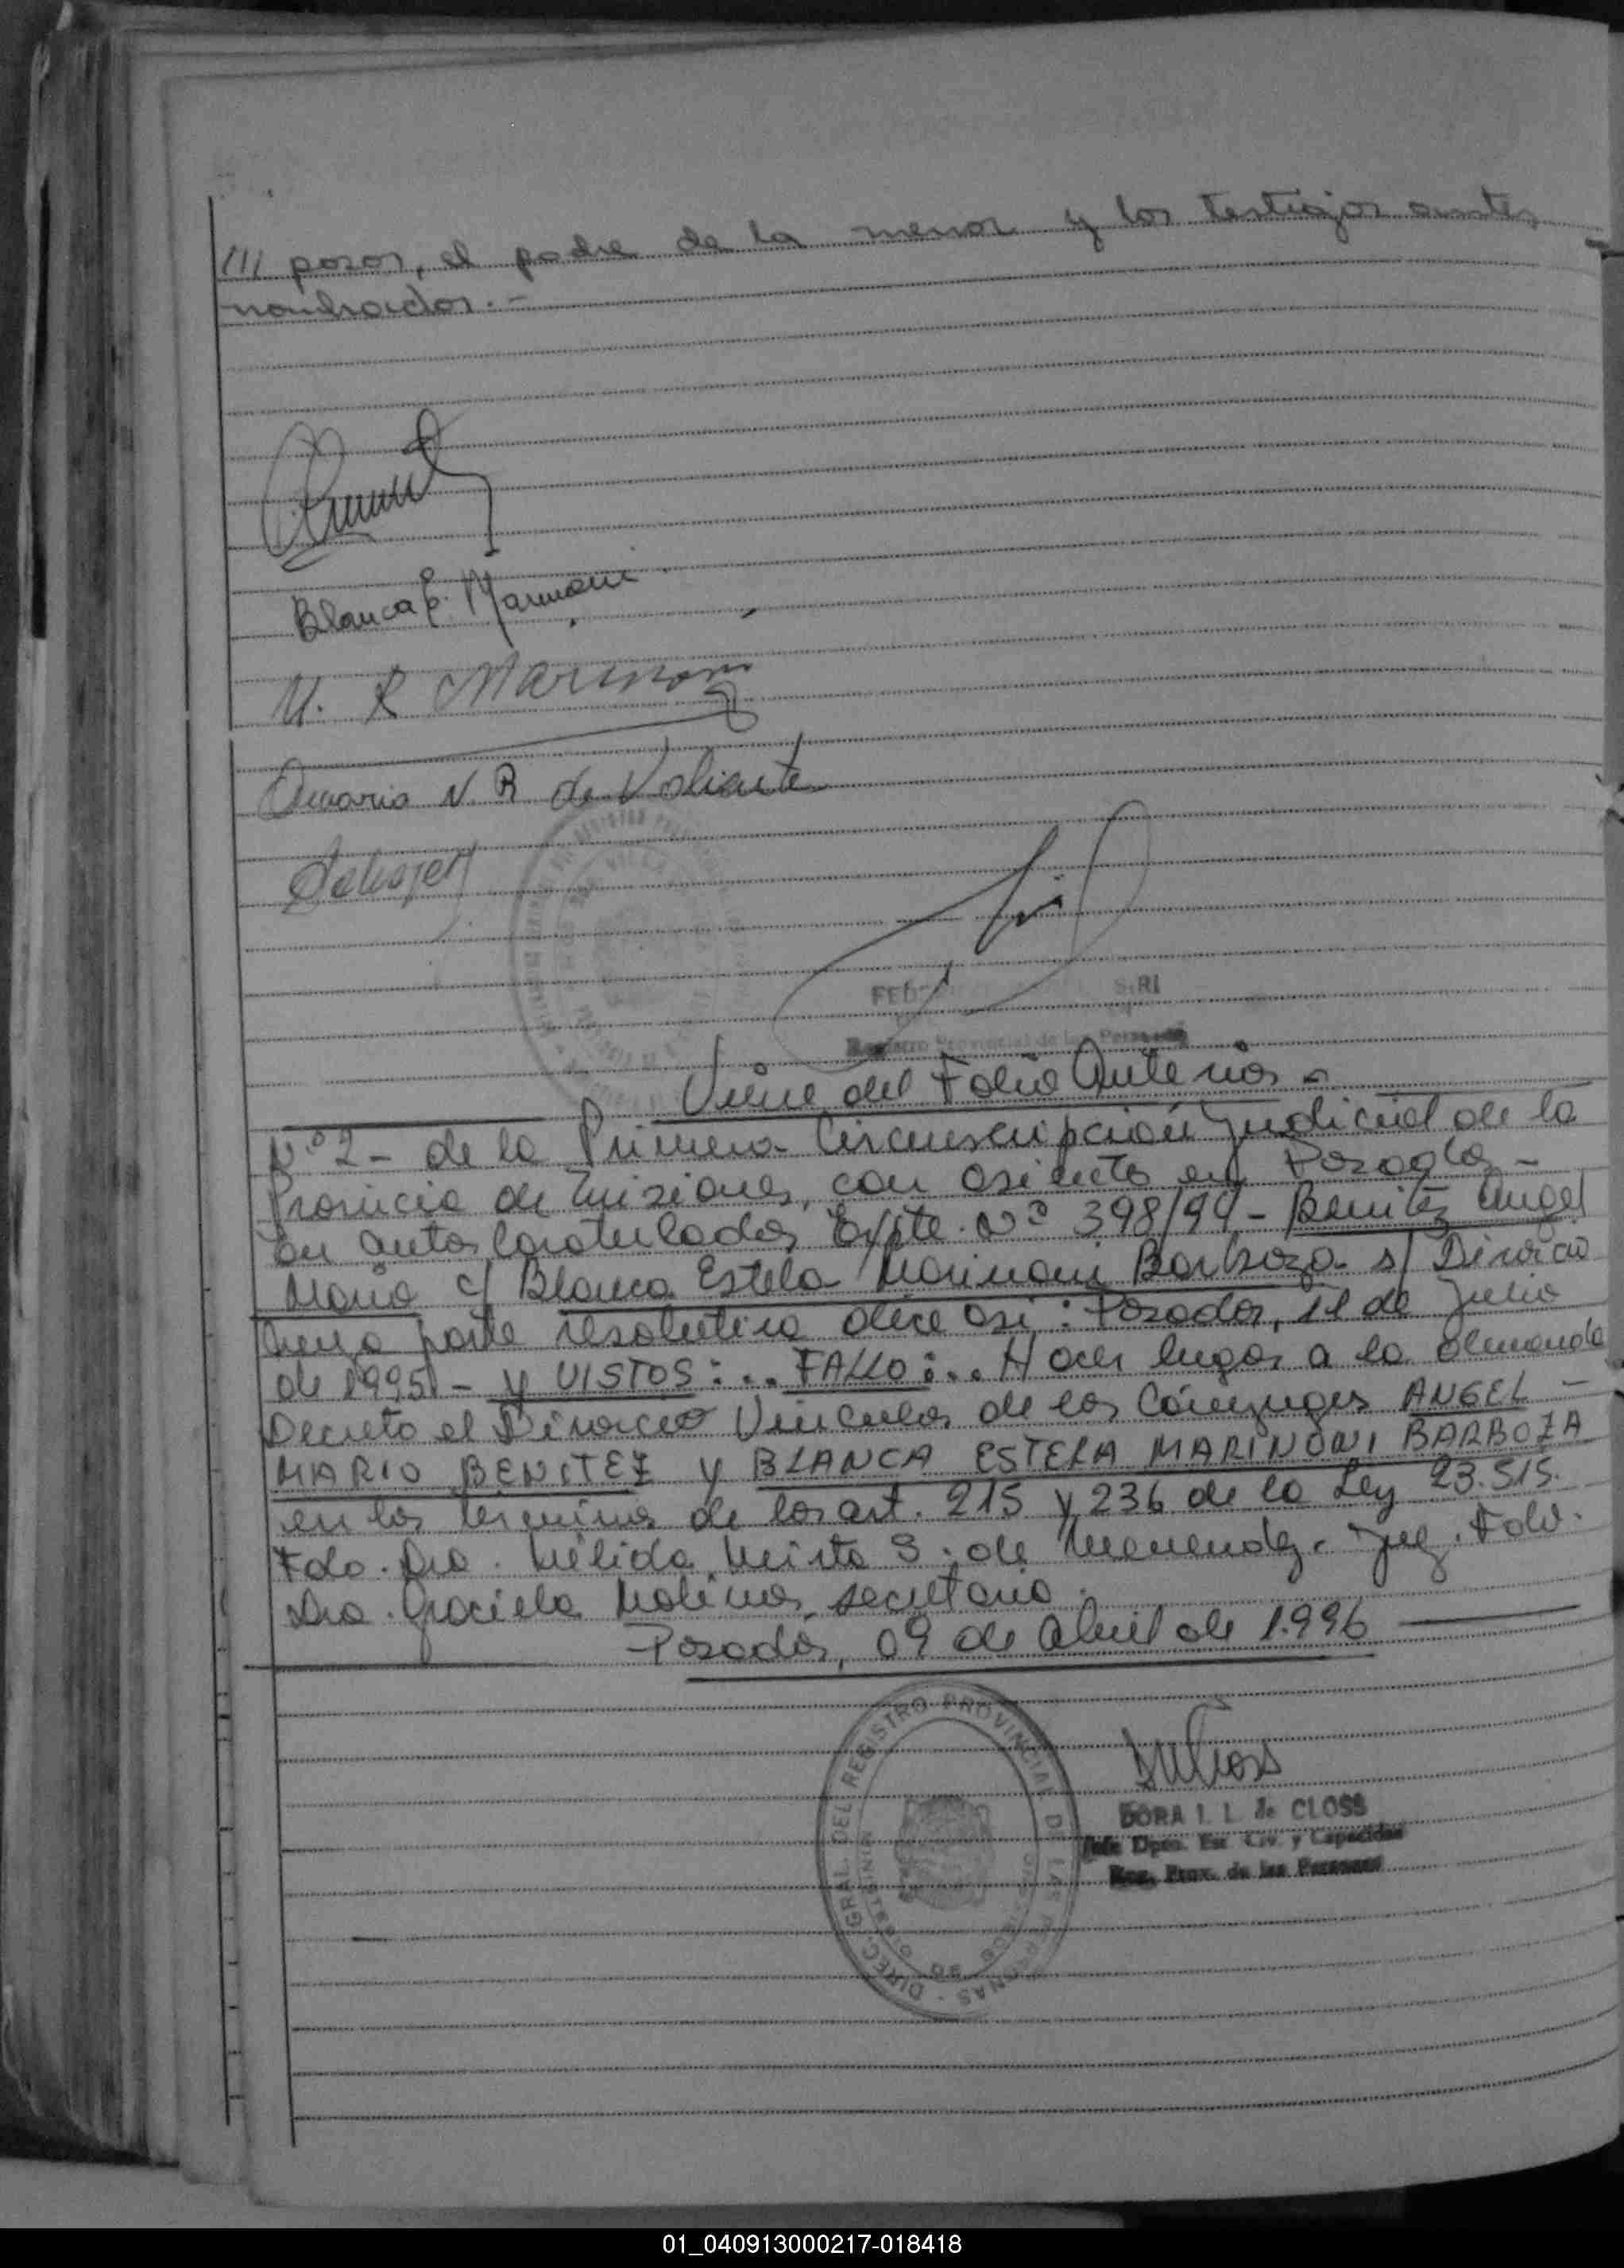 /// posos, el padre de la menor y los testigos antes
nombrados.-
Blanca E. Marinoni
M. R Marinoni
N. R de Valiente
Registro Provincial de las Personas
Viene del Folio Anterior -
Nº 2 - de la Primera Circunscripción Judicial de la
Provincia de Misiones, con asiento en Posadas -
en autos Caratulados Expte. Nº 398/94 - Benitez Angel
Mario c/ Blanca Estela Marinoni Barboza s/ Divorcio
Cuya parte resolutiva dice asi: Posadas, 11 de Julio
de 1995 - y VISTOS: ... FALLO: ... Hacer lugar a la demanda
Decreto el Divorcio Vincular de los Cónyuges ANGEL -
MARIO BENITEZ y BLANCA ESTELA MARINONI BARBOZA
en los términos de los art. 215 y 236 de la Ley 23.515.
Fdo. Dra. Mirta S. de Menendez. Juez. Fdo.
Dra. Graciela Molinas, secretaria.
Posadas, 09 de Abril de 1.996
DIREC. GRAL. DEL REGISTRO PROVINCIAL DE LAS PERSONAS
DORA I. L. de CLOSS
Jefe Dpto. Est. Civ. y Capacidad
Reg. Prov. de las Personas
01_040913000217-018418